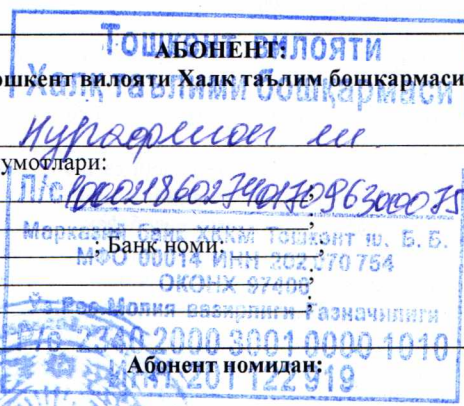 АБОНЕНТ:
Тошкент вилояти
ошкент вилояти Халк таълим бошкармаси
Халқ таълими бошқармаси
умотлари:
Л/с 100021860274017096300075
Марказий банк ХККМ Тошкент ш. Б. Б.
; Банк номи:
МФО 00014 ИНН 202 070 754
ОКОНХ 97400
Ўз Рес Молия вазирлиги Ғазначилиги
2340 2000 3001 0000 1010
Абонент номидан:
ИНН 201 122 919